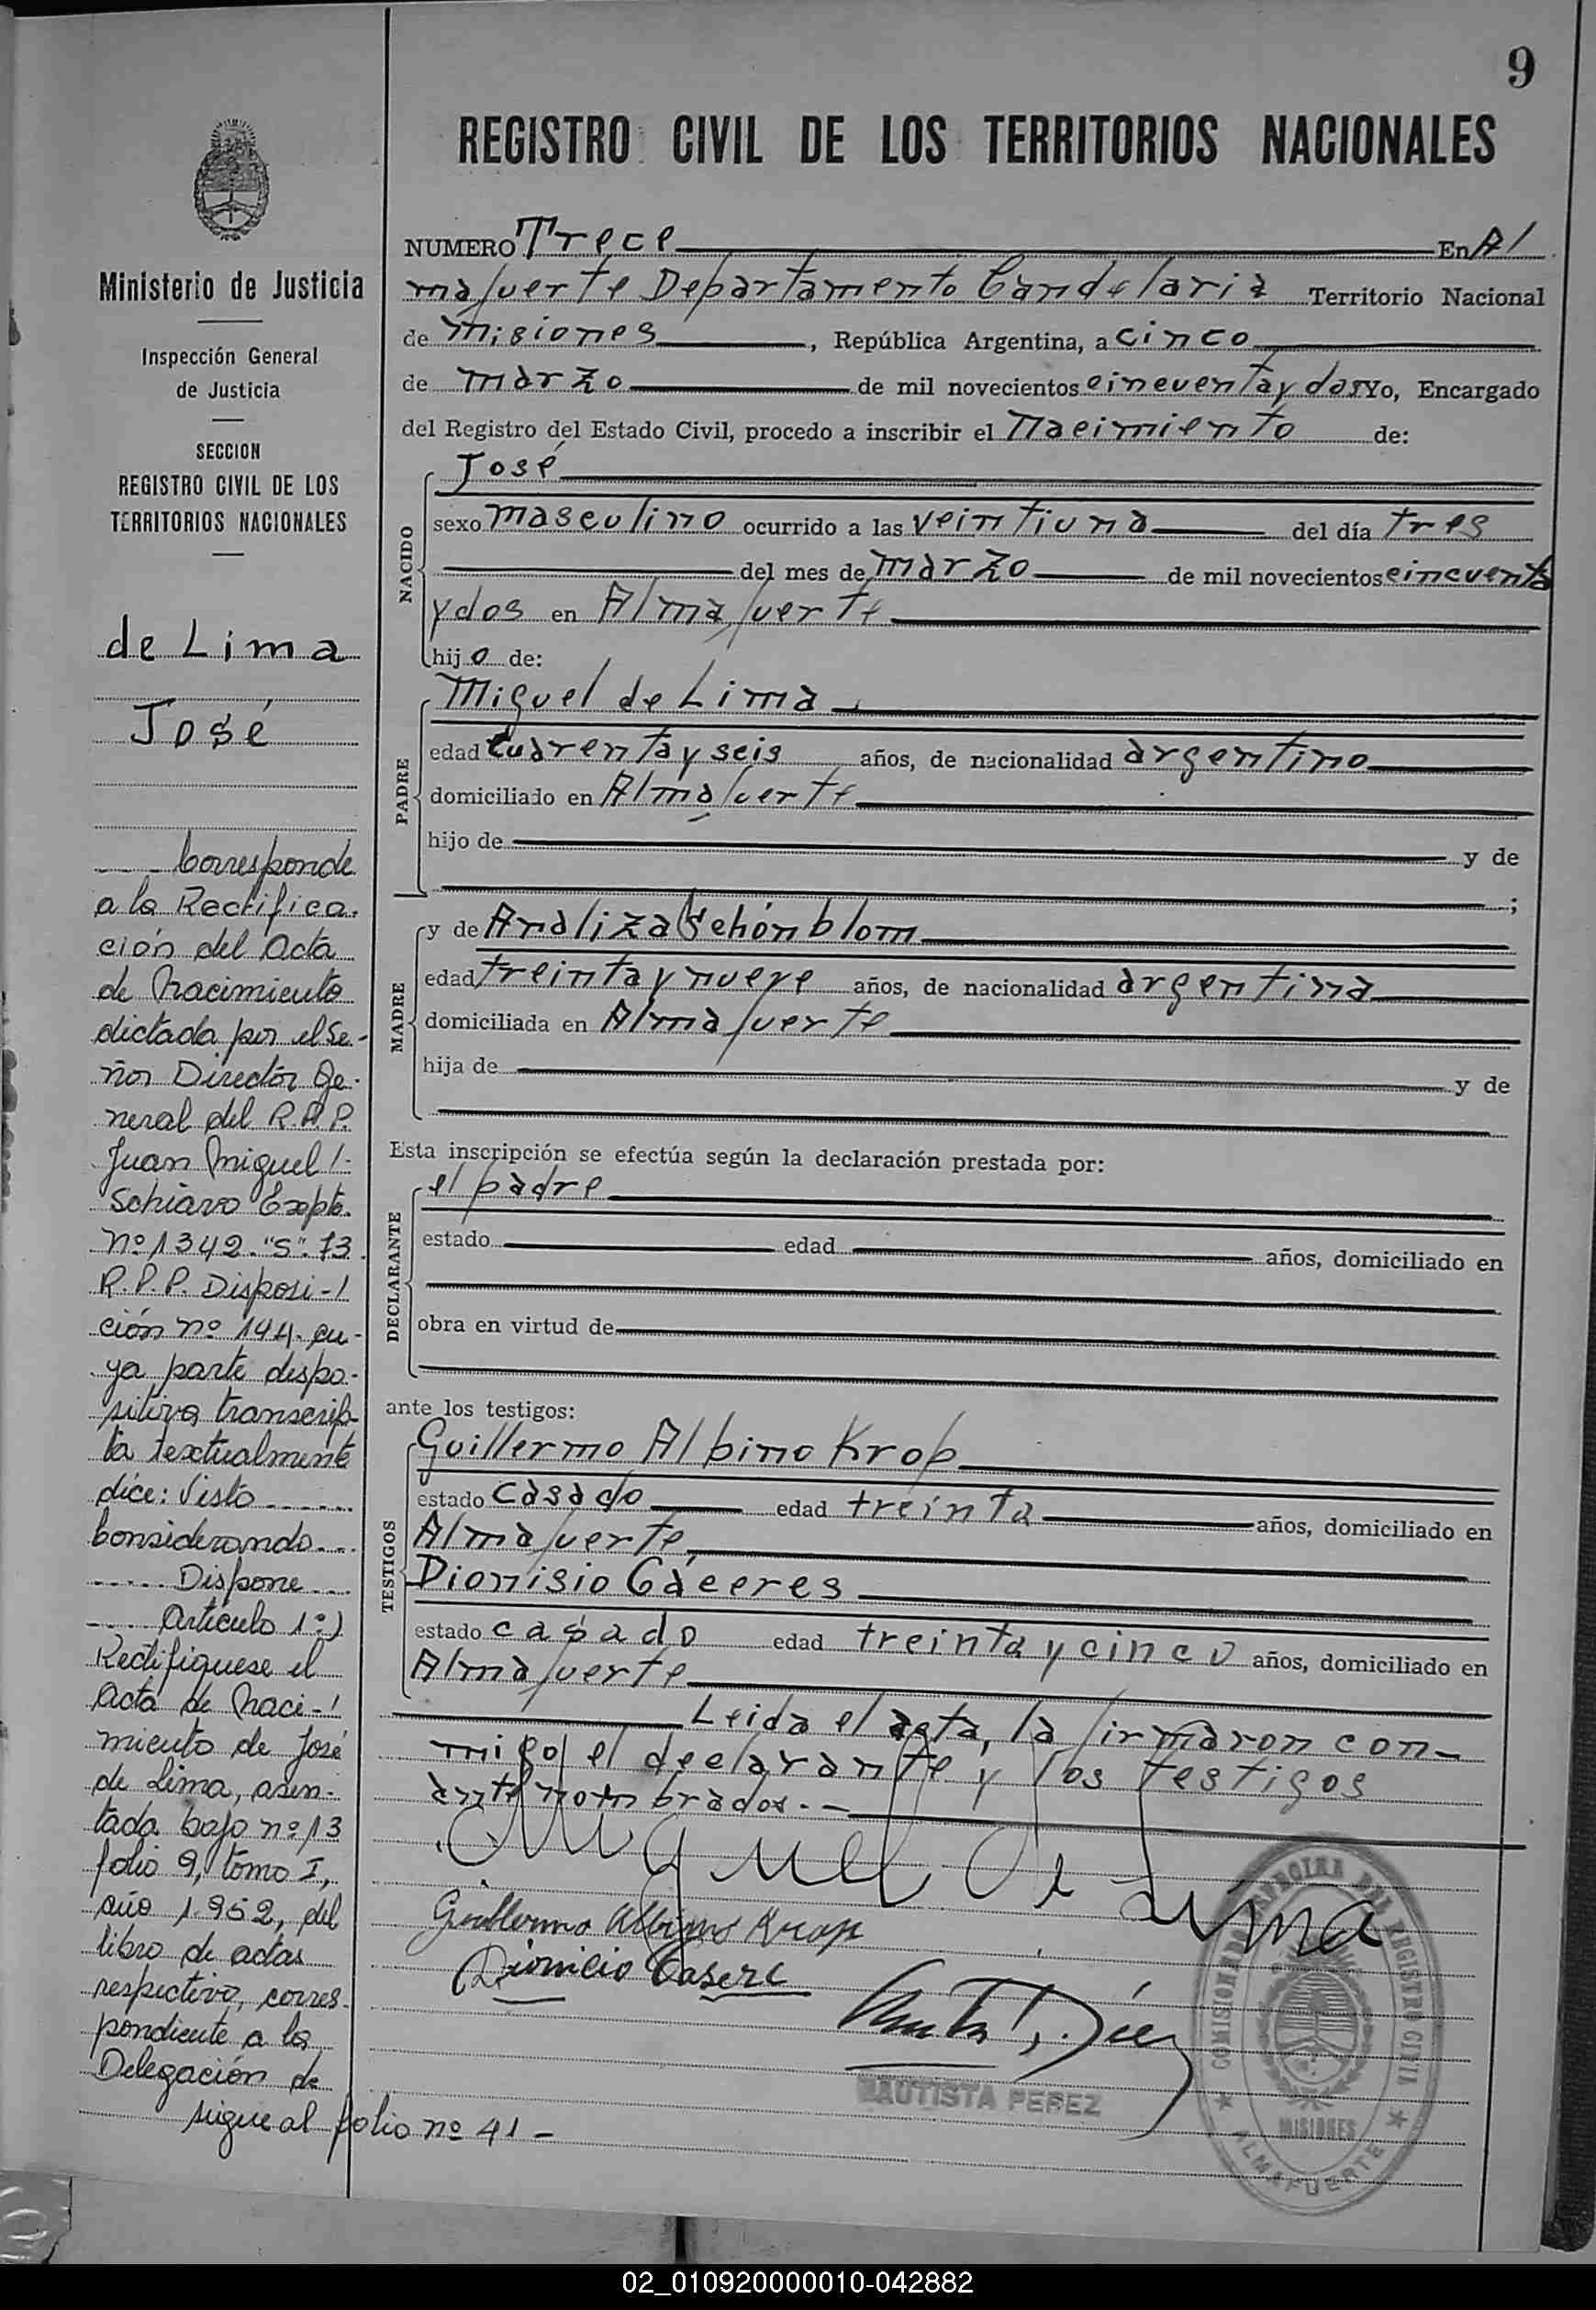 9
REGISTRO CIVIL DE LOS TERRITORIOS NACIONALES
Ministerio de Justicia
Inspección General
de Justicia
SECCION
REGISTRO CIVIL DE LOS
TERRITORIOS NACIONALES
de Lima
José
Corresponde
a la Rectifica-
ción del Acta
de Nacimiento
dictada por el Se-
ñor Director Ge-
neral del R.P.P.
Juan Miguel
Schiavo Expte.
Nº 1342 "S". 73
R.P.P. Disposi-
ción nº 144. cu-
ya parte dispo-
sitiva transcrip-
ta textualmente
dice: Visto
Considerando
Dispone
Artículo 1º)
Rectifiquese el
Acta de Naci-
miento de José
de Lima, asen-
tada bajo nº 13
folio 9, tomo I,
año 1.952, del
libro de actas
respectivo, corres-
pondiente a la
Delegación de
sigue al folio nº 41 -
NUMERO Trece En Al
mafuerte Departamento Candelaria Territorio Nacional
de Misiones, República Argentina, a cinco
de marzo de mil novecientos cincuenta y dos Yo, Encargado
del Registro del Estado Civil, procedo a inscribir el nacimiento de:
NACIDO
José
sexo masculino ocurrido a las veintiuna del día tres
del mes de marzo de mil novecientos cincuenta
y dos en Almafuerte
hijo de:
PADRE
Miguel de Lima
edad cuarenta y seis años, de nacionalidad argentino
domiciliado en Almafuerte
hijo de y de
;
MADRE
y de Analiza Schönblom
edad treinta y nueve años, de nacionalidad argentina
domiciliada en Almafuerte
hija de y de
Esta inscripción se efectúa según la declaración prestada por:
DECLARANTE
el padre
estado edad años, domiciliado en
obra en virtud de
ante los testigos:
TESTIGOS
Guillermo Albino Krop
estado casado edad treinta años, domiciliado en
Almafuerte
Dionisio Cáceres
estado casado edad treinta y cinco años, domiciliado en
Almafuerte
Leida el acta, la firmaron con-
migo el declarante y los testigos
antenombrados.-
Miguel de Lima
Guillermo Albino Krop
Dionicio Casere
BAUTISTA PEREZ
REGISTRO CIVIL
MISIONES
ALMAFUERTE
02_010920000010-042882